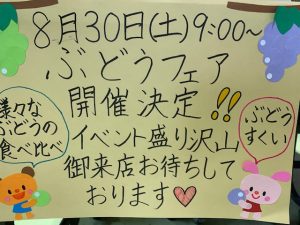 8月30日(土)9:00~
ぶどうフェア
開催決定!!
イベント盛り沢山
御来店お待ちして
おります♥
様々な
ぶどうの
食べ比べ
ぶどう
すくい